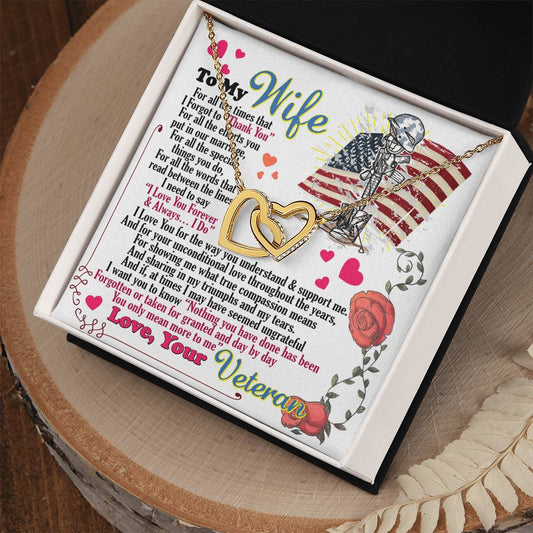 To My Wife
For all the times that
I Forgot to "Thank You"
For all the efforts you
put in our marriage.
For all the special
things you do,
For all the words that
read between the lines
I need to say
"I Love You Forever
& Always... I Do"
I Love You for the way you understand & support me.
And for your unconditional love throughout the years,
For showing me what true compassion means
And sharing in my triumphs and my tears.
And if, at times I may have seemed ungrateful
I want you to know "Nothing you have done has been
Forgotten or taken for granted and day by day
You only mean more to me"
Love, Your Veteran